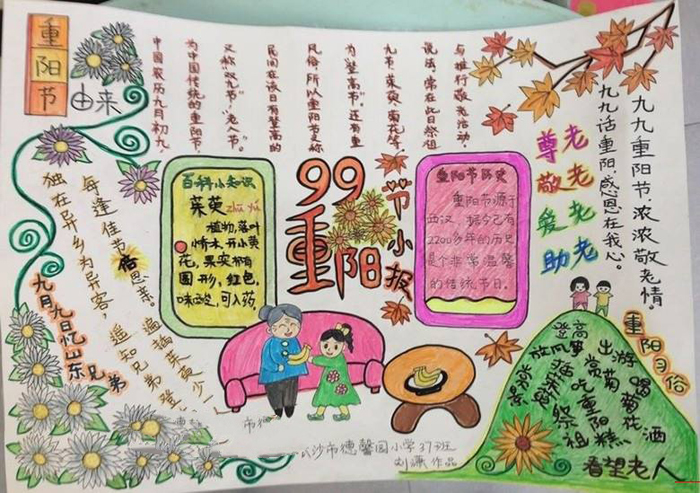 重阳节
由来
中国农历九月初九
为中国传统的重阳节,
又称"双九节"、"老人节"。
民间在该日有登高的
风俗,所以重阳节又称
为"登高节"。还有重
九节、茱萸、菊花等
说法。常在此日祭祖
与推行敬老活动。
九九重阳节,浓浓敬老情。
九九话重阳,感恩在我心。
尊老
敬老
爱老
助老
百科小知识
茱萸 zhū yú
植物,落叶
乔木,开小黄
花,果实椭
圆形,红色,
味酸,可入药
99
重阳
节小报
重阳节历史
重阳节源于
西汉 据今已有
2200多年的历史
是个非常温馨
的传统节日。
独在异乡为异客,
每逢佳节倍思亲。
遥知兄弟登
遍插茱萸少一
九月九日忆山东兄弟
重阳习俗
登高
出游
赏菊
放风筝
插茱萸
吃重阳糕
喝菊花酒
祭祖
看望老人
沙市德馨园小学37班
刘 作品